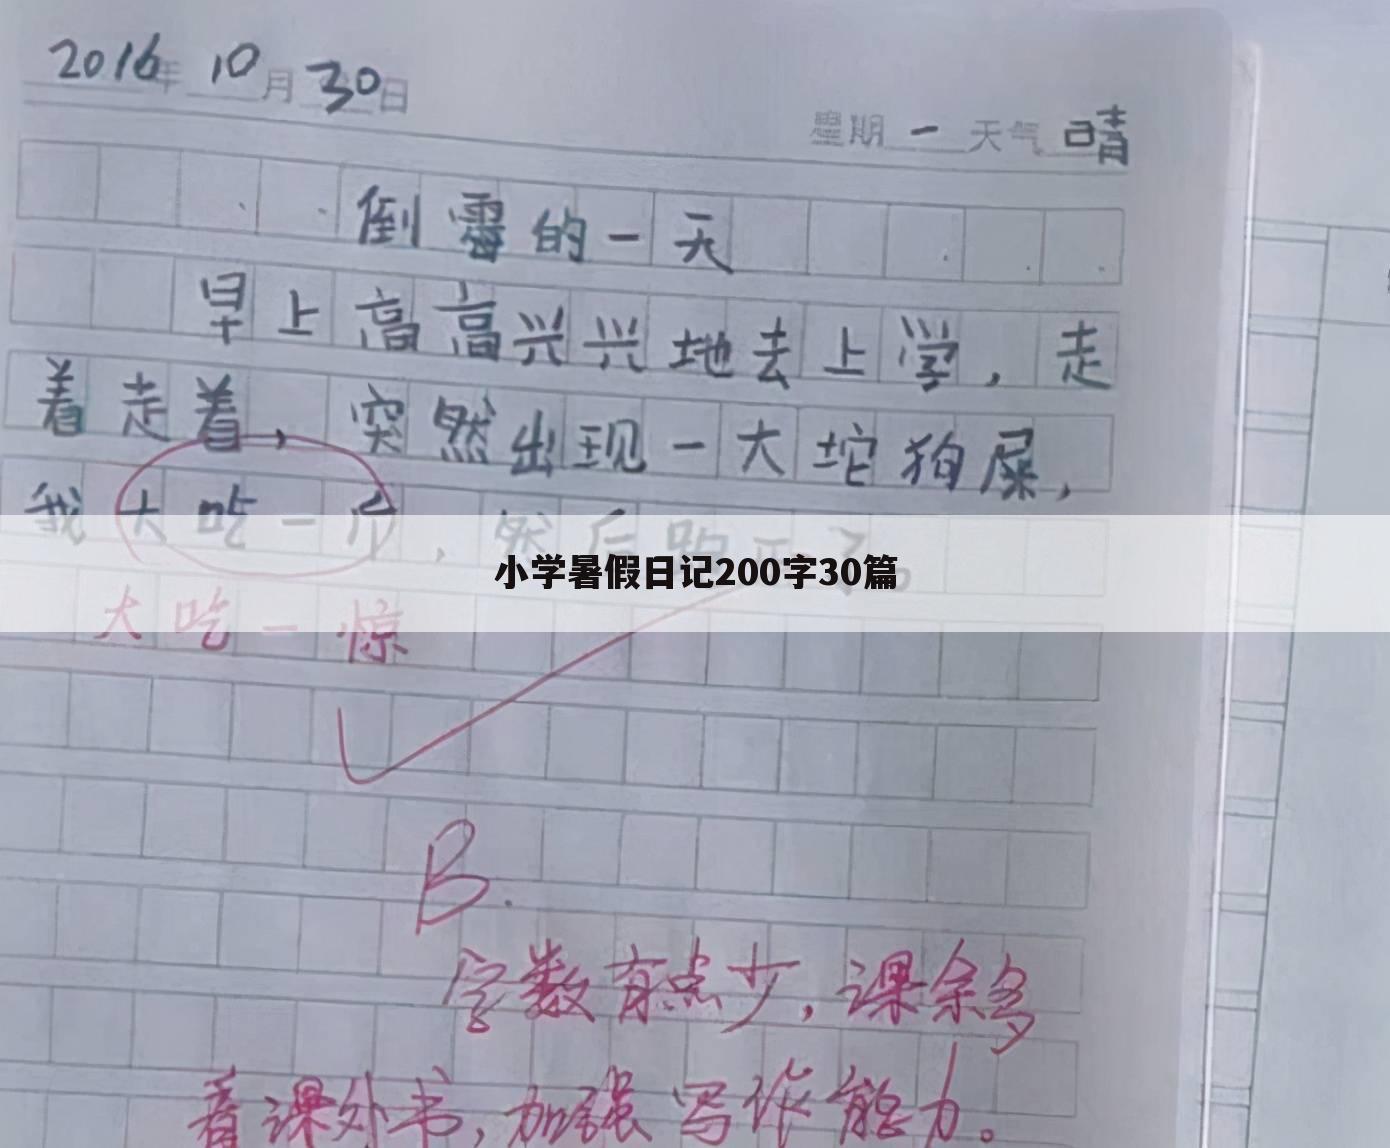 2016年10月30日
星期一天气晴
倒霉的一天
早上高高兴兴地去上学，走
着走着，突然出现一大坨狗屎，
我大吃一斤，然后跑
小学暑假日记200字30篇
大吃一惊
B.
字数有点少，课余多
看课外书，加强写作能力。